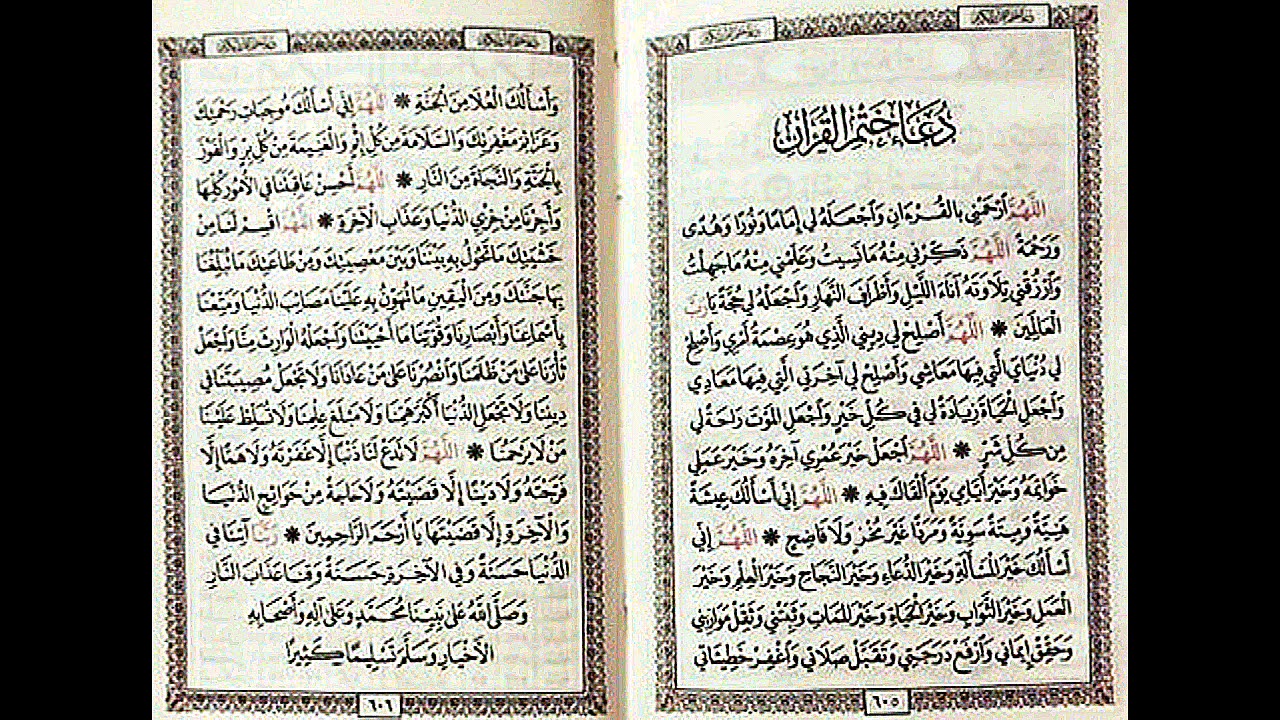 دُعَاءُ خَتْمِ القُرْآنِ
اللَّهُمَّ ارْحَمْنِي بِالقُرْءَانِ وَاجْعَلْهُ لِي إِمَامًا وَنُورًا وَهُدًى
وَرَحْمَةً اللَّهُمَّ ذَكِّرْنِي مِنْهُ مَا نَسِيتُ وَعَلِّمْنِي مِنْهُ مَا جَهِلْتُ
وَارْزُقْنِي تِلَاوَتَهُ آنَاءَ اللَّيْلِ وَأَطْرَافَ النَّهَارِ وَاجْعَلْهُ لِي حُجَّةً يَا رَبَّ
الْعَالَمِينَ * اللَّهُمَّ أَصْلِحْ لِي دِينِي الَّذِي هُوَ عِصْمَةُ أَمْرِي وَأَصْلِحْ
لِي دُنْيَايَ الَّتِي فِيهَا مَعَاشِي وَأَصْلِحْ لِي آخِرَتِي الَّتِي فِيهَا مَعَادِي
وَاجْعَلِ الْحَيَاةَ زِيَادَةً لِي فِي كُلِّ خَيْرٍ وَاجْعَلِ الْمَوْتَ رَاحَةً لِي
مِن كُلِّ شَرٍّ * اللَّهُمَّ اجْعَلْ خَيْرَ عُمْرِي آخِرَهُ وَخَيْرَ عَمَلِي
خَوَاتِمَهُ وَخَيْرَ أَيَّامِي يَوْمَ أَلْقَاكَ فِيهِ * اللَّهُمَّ إِنِّي أَسْأَلُكَ عِيشَةً
هَنِيَّةً وَمِيتَةً سَوِيَّةً وَمَرَدًّا غَيْرَ مُخْزٍ وَلَا فَاضِحٍ * اللَّهُمَّ إِنِّي
أَسْأَلُكَ خَيْرَ الْمَسْأَلَةِ وَخَيْرَ الدُّعَاءِ وَخَيْرَ النَّجَاحِ وَخَيْرَ الْعِلْمِ وَخَيْرَ
الْعَمَلِ وَخَيْرَ الثَّوَابِ وَخَيْرَ الْحَيَاةِ وَخَيْرَ الْمَمَاتِ وَثَبِّتْنِي وَثَقِّلْ مَوَازِينِي
وَحَقِّقْ إِيمَانِي وَارْفَعْ دَرَجَتِي وَتَقَبَّلْ صَلَاتِي وَاغْفِرْ خَطِيئَاتِي
٦٠٥
وَأَسْأَلُكَ الْعُلَا مِنَ الْجَنَّةِ * اللَّهُمَّ إِنِّي أَسْأَلُكَ مُوجِبَاتِ رَحْمَتِكَ
وَعَزَائِمَ مَغْفِرَتِكَ وَالسَّلَامَةَ مِن كُلِّ إِثْمٍ وَالْغَنِيمَةَ مِن كُلِّ بِرٍّ وَالْفَوْزَ
بِالْجَنَّةِ وَالنَّجَاةَ مِنَ النَّارِ * اللَّهُمَّ أَحْسِنْ عَاقِبَتَنَا فِي الْأُمُورِ كُلِّهَا
وَأَجِرْنَا مِنْ خِزْيِ الدُّنْيَا وَعَذَابِ الْآخِرَةِ * اللَّهُمَّ اقْسِمْ لَنَا مِنْ
خَشْيَتِكَ مَا تَحُولُ بِهِ بَيْنَنَا وَبَيْنَ مَعْصِيَتِكَ وَمِنْ طَاعَتِكَ مَا تُبَلِّغُنَا
بِهَا جَنَّتَكَ وَمِنَ الْيَقِينِ مَا تُهَوِّنُ بِهِ عَلَيْنَا مَصَائِبَ الدُّنْيَا وَمَتِّعْنَا
بِأَسْمَاعِنَا وَأَبْصَارِنَا وَقُوَّتِنَا مَا أَحْيَيْتَنَا وَاجْعَلْهُ الْوَارِثَ مِنَّا وَاجْعَلْ
ثَأْرَنَا عَلَى مَنْ ظَلَمَنَا وَانْصُرْنَا عَلَى مَنْ عَادَانَا وَلَا تَجْعَلْ مُصِيبَتَنَا فِي
دِينِنَا وَلَا تَجْعَلِ الدُّنْيَا أَكْبَرَ هَمِّنَا وَلَا مَبْلَغَ عِلْمِنَا وَلَا تُسَلِّطْ عَلَيْنَا
مَنْ لَا يَرْحَمُنَا * اللَّهُمَّ لَا تَدَعْ لَنَا ذَنْبًا إِلَّا غَفَرْتَهُ وَلَا هَمًّا إِلَّا
فَرَّجْتَهُ وَلَا دَيْنًا إِلَّا قَضَيْتَهُ وَلَا حَاجَةً مِنْ حَوَائِجِ الدُّنْيَا
وَالْآخِرَةِ إِلَّا قَضَيْتَهَا يَا أَرْحَمَ الرَّاحِمِينَ * رَبَّنَا آتِنَا فِي
الدُّنْيَا حَسَنَةً وَفِي الْآخِرَةِ حَسَنَةً وَقِنَا عَذَابَ النَّارِ
وَصَلَّى اللَّهُ عَلَى نَبِيِّنَا مُحَمَّدٍ وَعَلَى آلِهِ وَأَصْحَابِهِ
الْأَخْيَارِ وَسَلَّمَ تَسْلِيمًا كَثِيرًا
٦٠٦